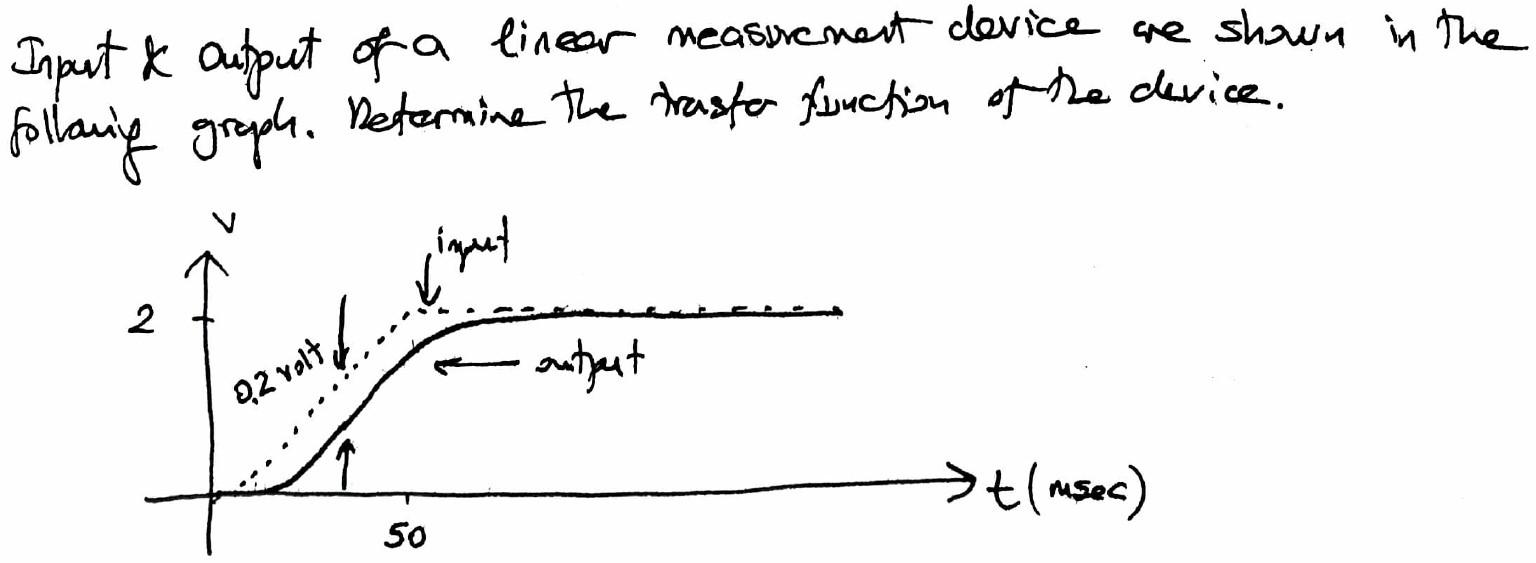 Input & Output of a linear measurement device are shown in the
following graph. Determine the transfer function of the device.
V
input
2
0.2 volt
output
t (msec)
50